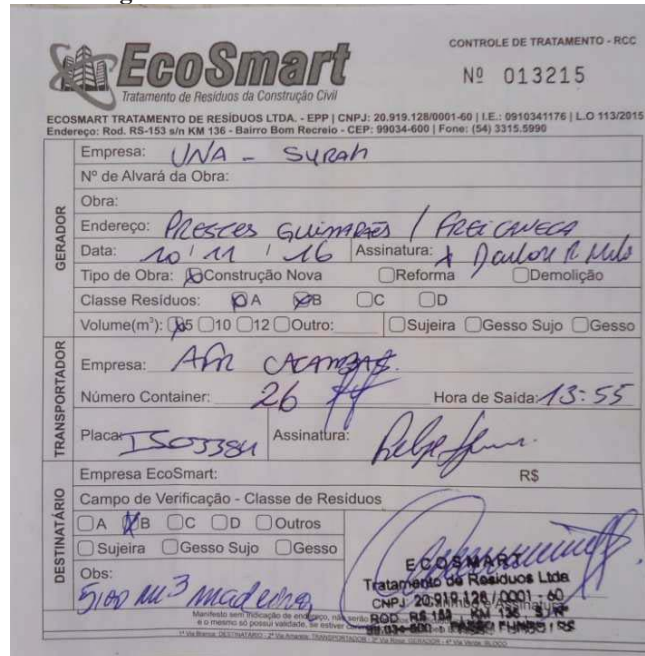 EcoSmart
Tratamento de Resíduos da Construção Civil
CONTROLE DE TRATAMENTO - RCC
Nº 013215
ECOSMART TRATAMENTO DE RESÍDUOS LTDA. - EPP | CNPJ: 20.919.128/0001-60 | I.E.: 0910341176 | L.O 113/2015
Endereço: Rod. RS-153 s/n KM 136 - Bairro Bom Recreio - CEP: 99034-600 | Fone: (54) 3315.5990
GERADOR
Empresa: UNA - SYRAH
Nº de Alvará da Obra:
Obra:
Endereço: PRESTES GUIMARÃES / FREI CANECA
Data: 10 / 11 / 16 Assinatura:
Tipo de Obra: Construção Nova Reforma Demolição
Classe Resíduos: A B C D
Volume(m³): 5 10 12 Outro: Sujeira Gesso Sujo Gesso
TRANSPORTADOR
Empresa:
Número Container: 26 Hora de Saída: 13:55
Placa: Assinatura:
DESTINATÁRIO
Empresa EcoSmart: R$
Campo de Verificação - Classe de Resíduos
A B C D Outros
Sujeira Gesso Sujo Gesso
Obs:
5,00 m3 madeira
ECOSMART
Tratamento de Resíduos Ltda
CNPJ 20.919.128/0001-60
ROD RS 153 KM 136 S/Nº
99.034-600 - PASSO FUNDO / RS
Manifesto sem indicação de endereço, não serão
e o mesmo só possui validade, se estiver
1ª Via Branca: DESTINATÁRIO - 2ª Via Amarela: TRANSPORTADOR - 3ª Via Rosa: GERADOR - 4ª Via Verde: BLOCO